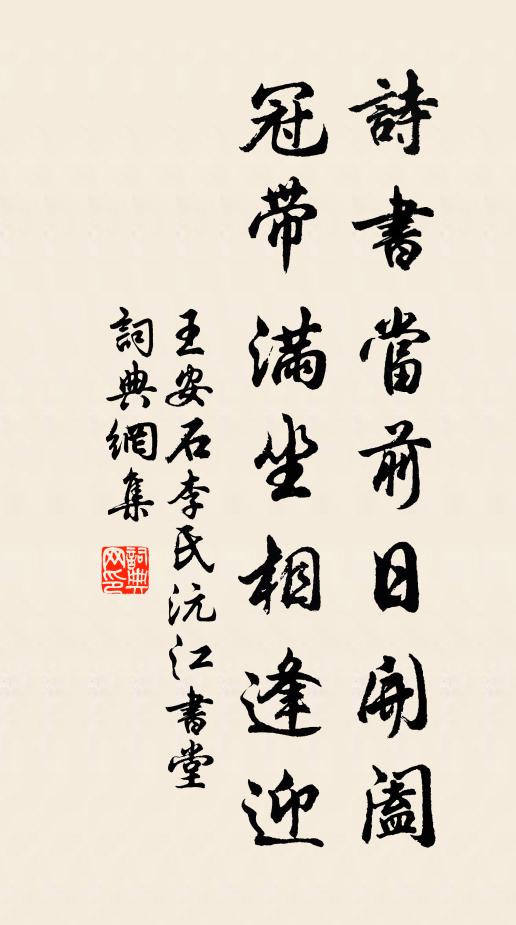 詩書當前日開闔
冠帶滿坐相逢迎
王安石李氏沅江書堂
詞典網集
詞典網印